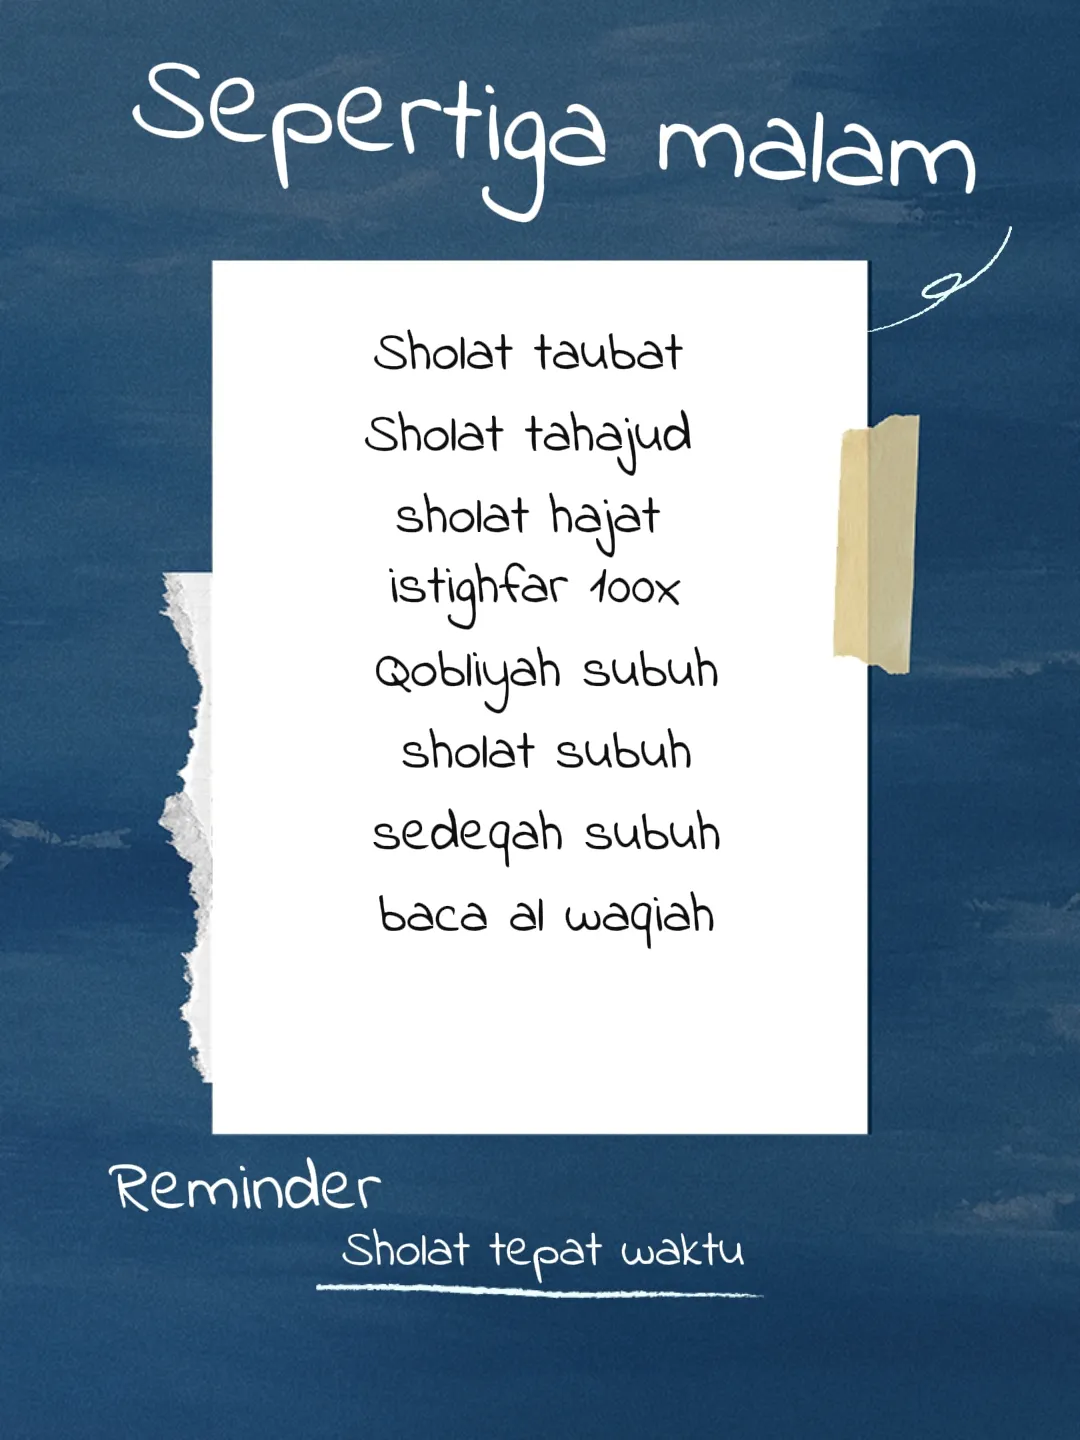 Sepertiga malam
Sholat taubat
Sholat tahajud
sholat hajat
istighfar 100x
Qobliyah subuh
sholat subuh
sedeqah subuh
baca al waqiah
Reminder
Sholat tepat waktu